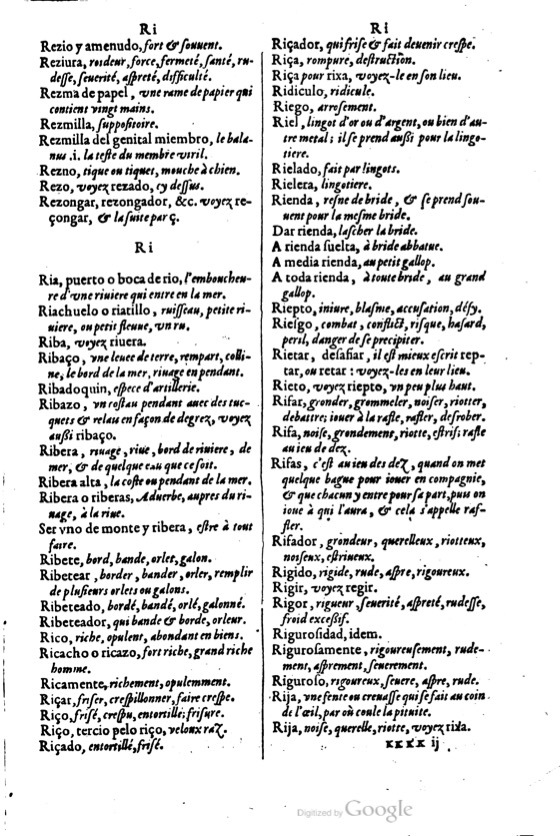 Ri
Rezio y amenudo, fort & ſouuent.
Reziura, roideur, force, fermeté, ſanté, ru-
deſſe, ſeuerité, aſpreté, difficulté.
Rezma de papel, vne rame de papier qui
contient vingt mains.
Rezmilla, ſuppoſitoire.
Rezmilla del genital miembro, le bala-
nus .i. la teſte du membre viril.
Rezno, tique ou tiquet, mouche à chien.
Rezo, voyez rezado, cy deſſus.
Rezongar, rezongador, &c. voyez re-
çongar, & la ſuite par ç.
Ri
Ria, puerto o boca de rio, l'emboucheu-
re d'vne riuiere qui entre en la mer.
Riachuelo o riatillo, ruiſſeau, petite ri-
uiere, ou petit fleuue, vn ru.
Riba, voyez riuera.
Ribaço, vne leuee de terre, rempart, colli-
ne, le bord de la mer, riuage en pendant.
Ribadoquin, eſpece d'artillerie.
Ribazo, vn coſtau pendant auec des tuc-
quets & relau en façon de degrez, voyez
auſſi ribaço.
Ribera, riuage, riue, bord de riuiere, de
mer, & de quelque eau que ce ſoit.
Ribera alta, la coſte ou pendant de la mer.
Ribera o riberas, Aduerbe, aupres du ri-
uage, à la riue.
Ser vno de monte y ribera, eſtre à tout
faire.
Ribete, bord, bande, orlet, galon.
Ribetear, border, bander, orler, remplir
de pluſieurs orlets ou galons.
Ribeteado, bordé, bandé, orlé, galonné.
Ribeteador, qui bande & borde, orleur.
Rico, riche, opulent, abondant en biens.
Ricacho o ricazo, fort riche, grand riche
homme.
Ricamente, richement, opulemment.
Riçar, friſer, creſpillonner, faire creſpe.
Riço, friſé, creſpu, entortillé; friſure.
Riço, tercio pelo riço, veloux raz.
Riçado, entortillé, friſé.
Ri
Riçador, qui friſe & fait deuenir creſpe.
Riça, rompure, deſtruction.
Riça pour rixa, voyez-le en ſon lieu.
Ridiculo, ridicule.
Riego, arroſement.
Riel, lingot d'or ou d'argent, ou bien d'au-
tre metal; il ſe prend auſſi pour la lingo-
tiere.
Rielado, fait par lingots.
Rielera, lingotiere.
Rienda, reſne de bride, & ſe prend ſou-
uent pour la meſme bride.
Dar rienda, laſcher la bride.
A rienda ſuelta, à bride abbatue.
A media rienda, au petit gallop.
A toda rienda, à toute bride, au grand
gallop.
Riepto, iniure, blaſme, accuſation, défy.
Rieſgo, combat, conflict, riſque, haſard,
peril, danger de ſe precipiter.
Rietar, deſafiar, il eſt mieux eſcrit rep-
tar, ou retar: voyez-les en leur lieu.
Rieto, voyez riepto, vn peu plus haut.
Rifar, gronder, grommeler, noiſer, riotter,
debattre; iouer à la rafle, rafler, deſrober.
Rifa, noiſe, grondement, riotte, eſtrif; rafle
au ieu de dez.
Rifas, c'eſt au ieu des dez, quand on met
quelque bague pour iouer en compagnie,
& que chacun y entre pour ſa part, puis on
ioue à qui l'aura, & cela s'appelle raf-
fler.
Rifador, grondeur, querelleux, riotteux,
noiſeux, eſtriueux.
Rigido, rigide, rude, aſpre, rigoureux.
Rigir, voyez regir.
Rigor, rigueur, ſeuerité, aſpreté, rudeſſe,
froid exceſſif.
Riguroſidad, idem.
Riguroſamente, rigoureuſement, rude-
ment, aſprement, ſeuerement.
Riguroſo, rigoureux, ſeuere, aſpre, rude.
Rija, vne fente ou creuaſſe qui ſe fait au coin
de l'œil, par où coule la pituite.
Rija, noiſe, querelle, riotte, voyez rixa.
KKKK ij
Digitized by Google